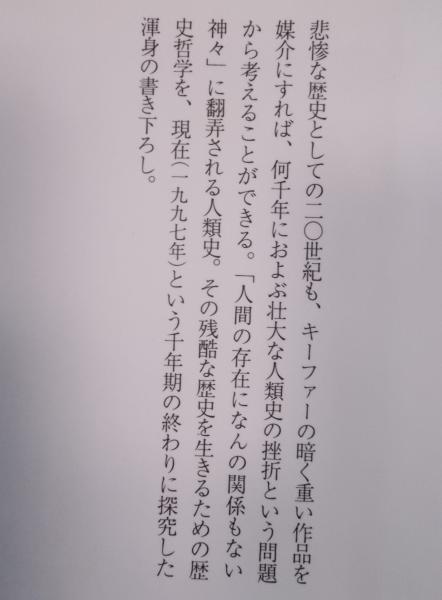 悲惨な歴史としての二〇世紀も、キーファーの暗く重い作品を
媒介にすれば、何千年におよぶ壮大な人類史の挫折という問題
から考えることができる。「人間の存在になんの関係もない
神々」に翻弄される人類史。その残酷な歴史を生きるための歴
史哲学を、現在(一九九七年)という千年期の終わりに探究した
渾身の書き下ろし。